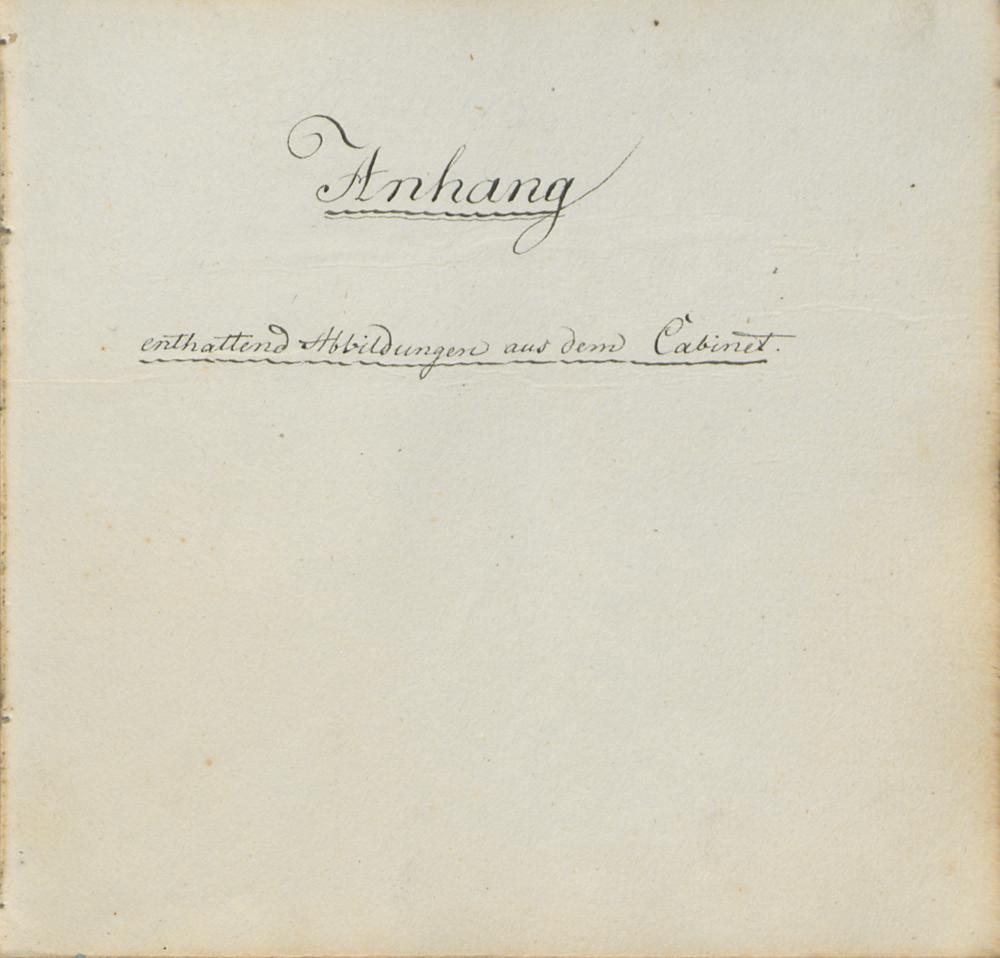 Anhang
enthaltend Abbildungen aus dem Cabinet.